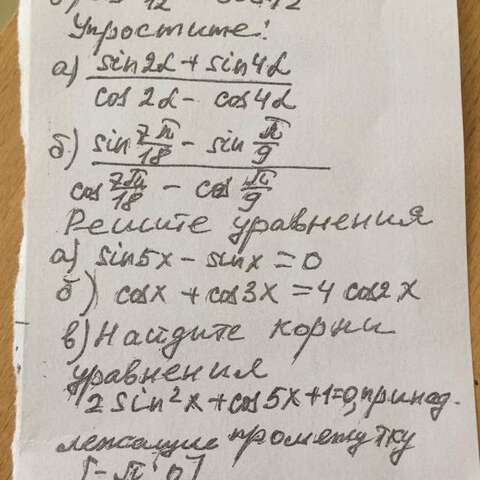 Упростите:
а) sin2α + sin4α
cos2α - cos4α
б) sin 7π/18 - sin π/9
cos 7π/18 - cos π/9
Решите уравнения
а) sin5x - sinx = 0
б) cosx + cos3x = 4 cos2x
в) Найдите корни
уравнения
2 sin²x + cos5x + 1 = 0, принад-
лежащие промежутку
[-π; 0]